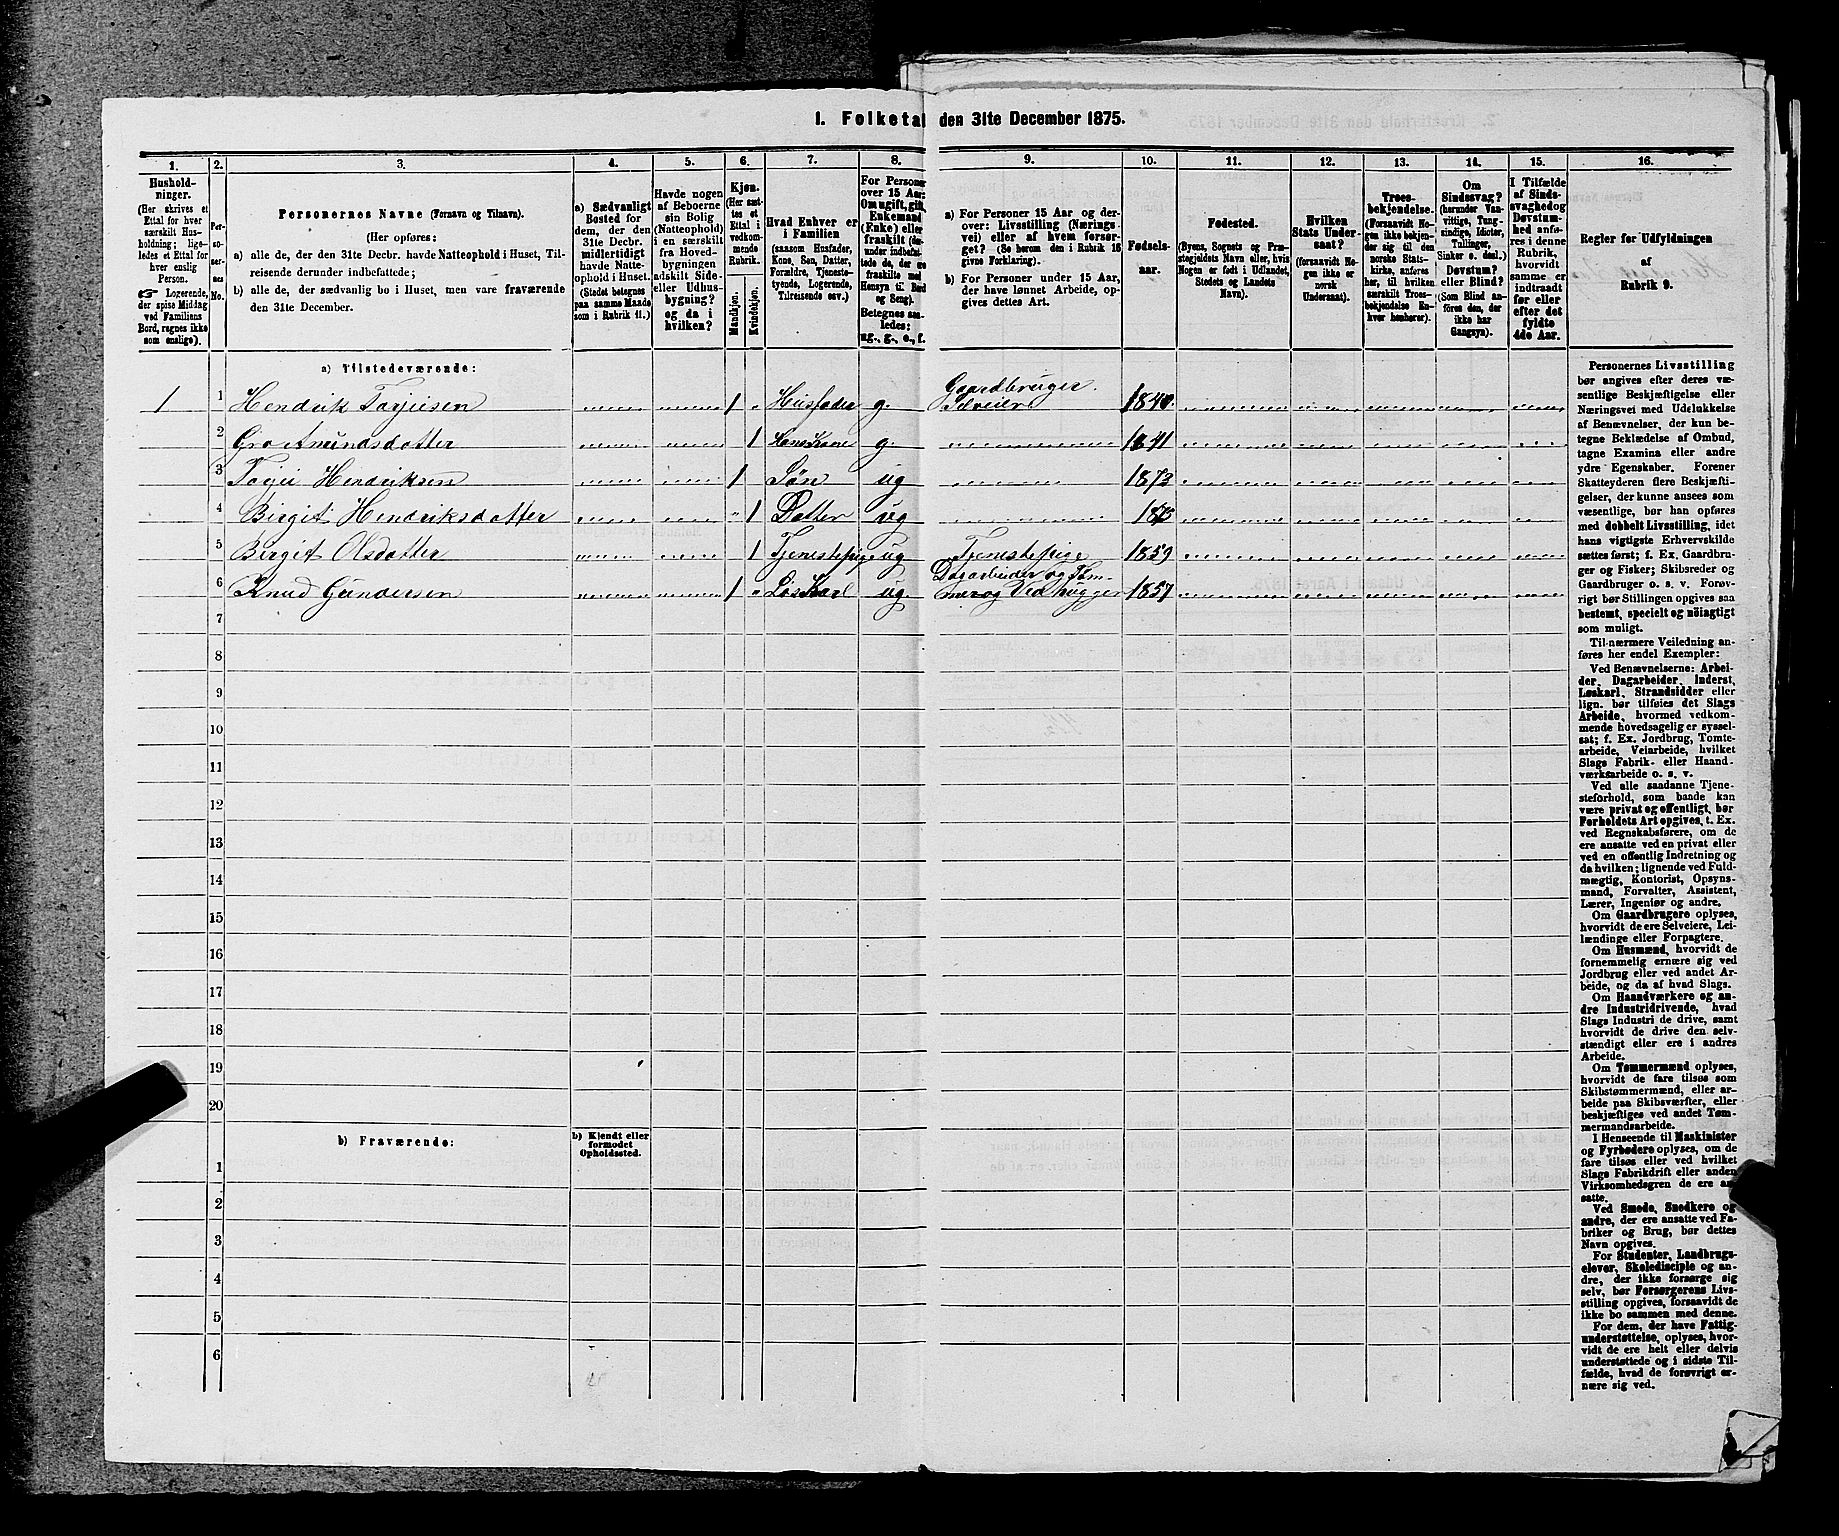 I. Folketal den 31te December 1875.
1.
2.
3.
4.
5.
6.
7.
8.
9.
10.
11.
12.
13.
14.
15.
16.
Hushold-
ninger.
(Her skrives et
Ettal for hver
særskilt Hus-
holdning; lige-
ledes et Ettal for
hver enslig
Person.
Logerende,
der spise Middag
ved Familiens
Bord, regnes ikke
som enslige).
Per-
so-
ner-
nes
No.
Personernes Navne (Fornavn og Tilnavn).
(Her opføres:
a) alle de, der den 31te Decbr. havde Natteophold i Huset, Til-
reisende derunder indbefattede;
b) alle de, der sædvanlig bo i Huset, men vare fraværende
den 31te December.
a) Sædvanligt
Bosted for
dem, der den
31te Decbr.
midlertidigt
havde Natte-
ophold i Huset.
(Stedet betegnes
paa samme Maade
som i Rubrik 11.)
Havde nogen
af Beboerne
sin Bolig
(Natteophold)
i en særskilt
fra Hoved-
bygningen
adskilt Side-
eller Udhus-
bygning?
og da i
hvilken?
Kjøn.
(Her sæt-
tes et
Ettal i
vedkom-
mende
Rubrik.
Mandkjøn.
Kvindekjøn.
Hvad Enhver er
i Familien
(saasom Husfader,
Kone, Søn, Datter,
Forældre, Tjeneste-
tyende, Logerende,
Tilreisende osv.)
For Personer
over 15 Aar:
Om ugift, gift,
Enkemand
(Enke) eller
fraskilt (der-
under indbefat-
tede de, der ere
fraskilte med
Hensyn til Bord
og Seng).
Betegnes saa-
ledes:
ug., g., e., f.
a) For Personer 15 Aar og der-
over: Livsstilling (Nærings-
vei) eller af hvem forsør-
get? (Se herom den i Rubrik 16
givne Forklaring).
b) For Personer under 15 Aar,
der have lønnet Arbeide, op-
gives dettes Art.
Fødsels-
aar.
Fødested.
(Byens, Sognets og Præ-
stegjeldets Navn eller, hvis
Nogen er født i Udlandet,
Stedets og Landets
Navn).
Hvilken
Stats Under-
saat?
(forsaavidt No-
gen ikke er
norsk
Undersaat).
Troes-
bekjendelse.
(Forsaavidt No-
gen ikke bekjen-
der sig til den
norske Stats-
kirke, anføres
her, til hvilken
særskilt Troes-
bekjendelse En-
hver henhører).
Om
Sindssvag?
(herunder Van-
vittige, Tung-
sindige, Idioter,
Tullinger,
Sinker o. desl.)
Døvstum?
eller Blind?
(Som Blind an-
føres den, der
ikke har
Gangsyn).
I Tilfælde
af Sinds-
svaghed og
Døvstum-
hed anfø-
res i denne
Rubrik,
hvorvidt
samme er
indtraadt
før eller
efter det
fyldte
4de Aar.
Regler for Udfyldningen
af
Rubrik 9.
a) Tilstedeværende:
1 1 Hendrik Torjusen 1 Husfader g. Gaardbruger. Selveier 1840.
2 Gro Amundsdatter 1 Hans Kone g. 1841
3 Torjei Hendriksen 1 Søn ug 1873
4 Birgit Hendriksdatter 1 Datter ug
5 Birgit Olsdatter 1 Tjenestepige ug Tjenestepige 1859
6 Knud Gundersen 1 Løskarl ug Dagarbeider og Tøm-
mer og Vedhugger 1857
7
8
9
10
11
12
13
14
15
16
17
18
19
20
b) Fraværende:
b) Kjendt eller
formodet
Opholdssted.
1
2
3
4
5
6
Personernes Livsstilling
bør angives efter deres væ-
sentlige Beskjæftigelse eller
Næringsvei med Udelukkelse
af Benævnelser, der kun be-
tegne Beklædelse af Ombud,
tagne Examina eller andre
ydre Egenskaber. Forener
Skatteyderen flere Beskjæfti-
gelser, der kunne ansees som
væsentlige, bør han opføres
med dobbelt Livsstilling, idet
hans vigtigste Erhvervskilde
sættes først; f. Ex. Gaardbru-
ger og Fisker; Skibsreder og
Gaardbruger o. s. v. Forøv-
rigt bør Stillingen opgives saa
bestemt, specielt og nöiagtigt
som muligt.
Til nærmere Veiledning an-
føres her endel Exempler:
Ved Benævnelserne: Arbei-
der, Dagarbeider, Inderst,
Løskarl, Strandsidder eller
lign. bør tilføies det Slags
Arbeide, hvormed vedkom-
mende hovedsagelig er syssel-
sat; f. Ex. Jordbrug, Tomte-
arbeide, Veiarbeide, hvilket
Slags Fabrik- eller Haand-
værksarbeide o. s. v.
Ved alle saadanne Tjene-
steforhold, som baade kan
være privat og offentligt, bør
Forholdets Art opgives, t. Ex.
ved Regnskabsførere, om de
ere ansatte ved en privat eller
ved en offentlig Indretning og
da hvilken; lignende ved Fuld-
mægtig, Kontorist, Opsyns-
mand, Forvalter, Assistent,
Lærer, Ingeniør og andre.
Om Gaardbrugere oplyses,
hvorvidt de ere Selveiere, Lei-
lændinge eller Forpagtere.
Om Husmænd, hvorvidt de
fornemmelig ernære sig ved
Jordbrug eller ved andet Ar-
beide, og da af hvad Slags.
Om Haandværkere og an-
dre Industridrivende, hvad
Slags Industri de drive, samt
hvorvidt de drive den selv-
stændigt eller ere i andres
Arbeide.
Om Tømmermænd oplyses,
hvorvidt de fare tilsøs som
Skibstømmermænd, eller ar-
beide paa Skibsværfter, eller
beskjæftiges ved andet Tøm-
mermandsarbeide.
I Henseende til Maskinister
og Fyrbødere oplyses, om de
fare tilsøs eller ved hvilket
Slags Fabrikdrift eller anden
Virksomhedsgren de ere an-
satte.
Ved Smede, Snedkere og
andre, der ere ansatte ved Fa-
briker og Brug, bør dettes
Navn opgives.
For Studenter, Landbrugs-
elever, Skoledisciple og an-
dre, der ikke forsørge sig
selv, bør Forsørgerens Livs-
stilling opgives, forsaavidt de
ikke bo sammen med denne.
For dem, der have Fattig-
understøttelse, oplyses, hvor-
vidt de ere helt eller delvis
understøttede og i sidste Til-
fælde, hvad de forøvrigt er-
nære sig ved.